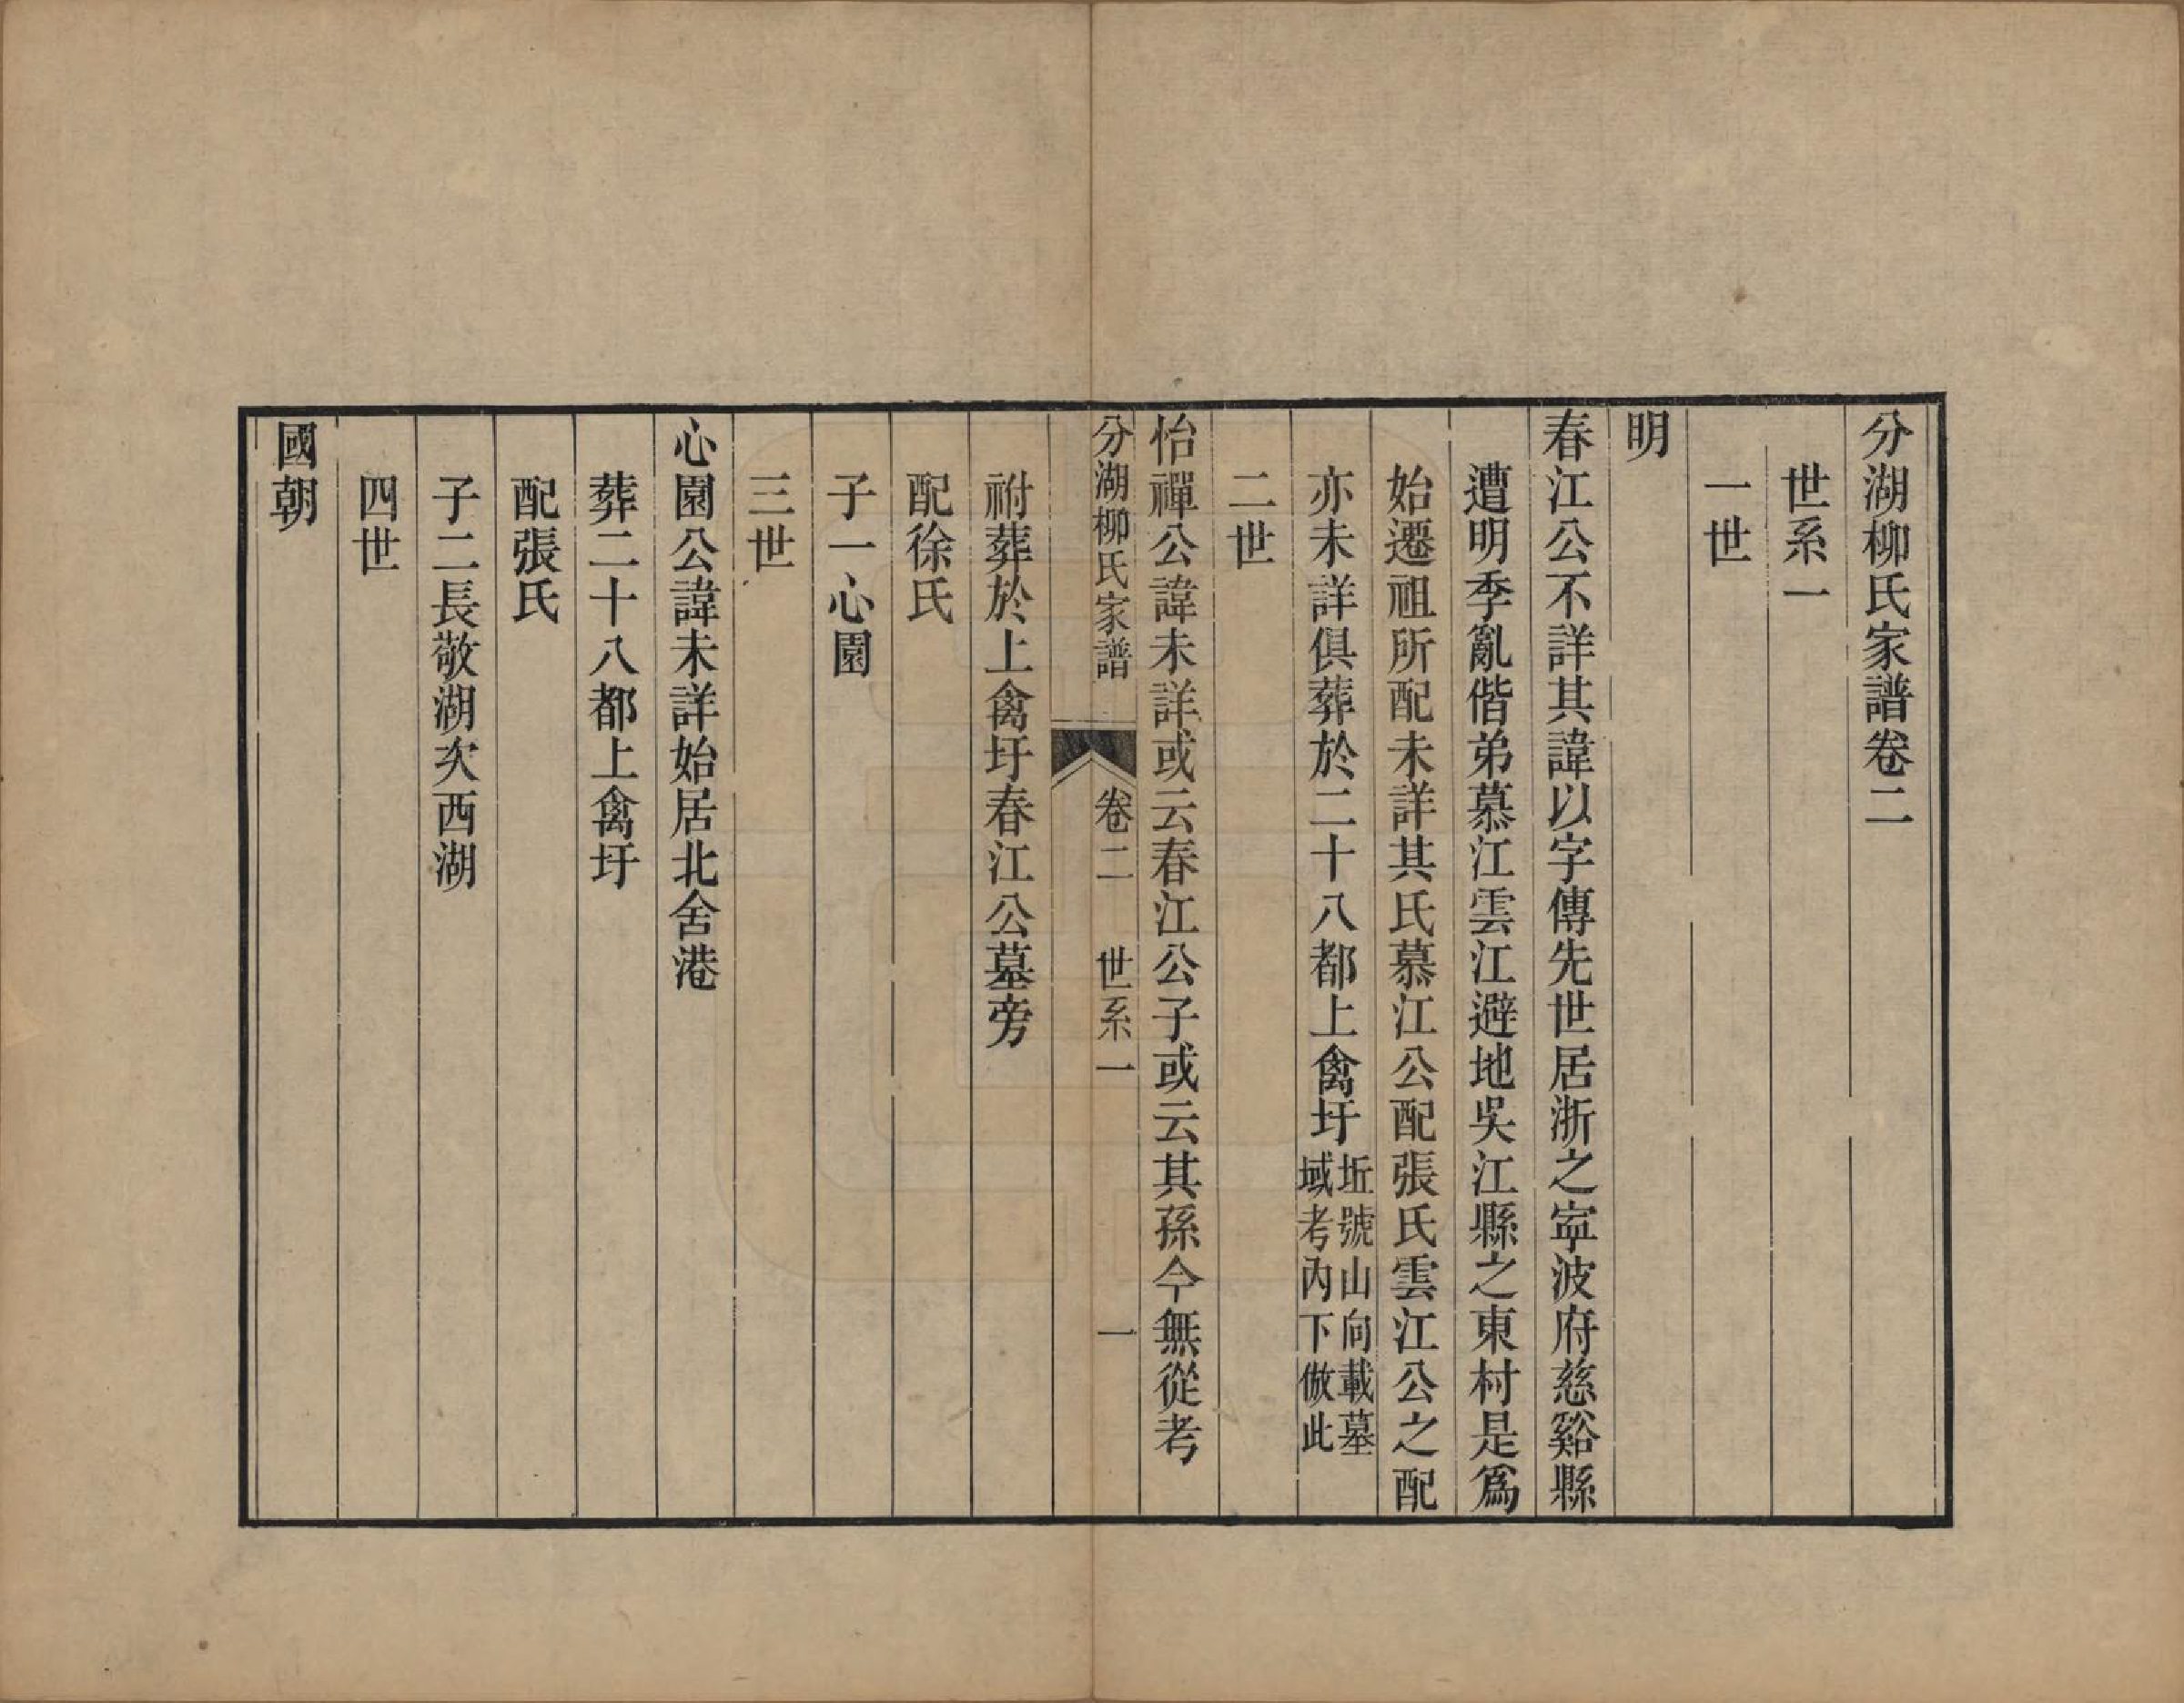 分湖柳氏家譜卷二
世系一
一世
明
春江公不詳其諱以字傳先世居浙之寧波府慈谿縣
遭明季亂偕弟慕江雲江避地吳江縣之東村是爲
始遷祖所配未詳其氏慕江公配張氏雲江公之配
亦未詳俱葬於二十八都上禽圩坵號山向載墓
域考內下倣此
二世
怡禪公諱未詳或云春江公子或云其孫今無從考
分湖柳氏家譜 卷二 世系一 一
祔葬於上禽圩春江公墓旁
配徐氏
子一心園
三世
心園公諱未詳始居北舍港
葬二十八都上禽圩
配張氏
子二長敬湖次西湖
四世
國朝